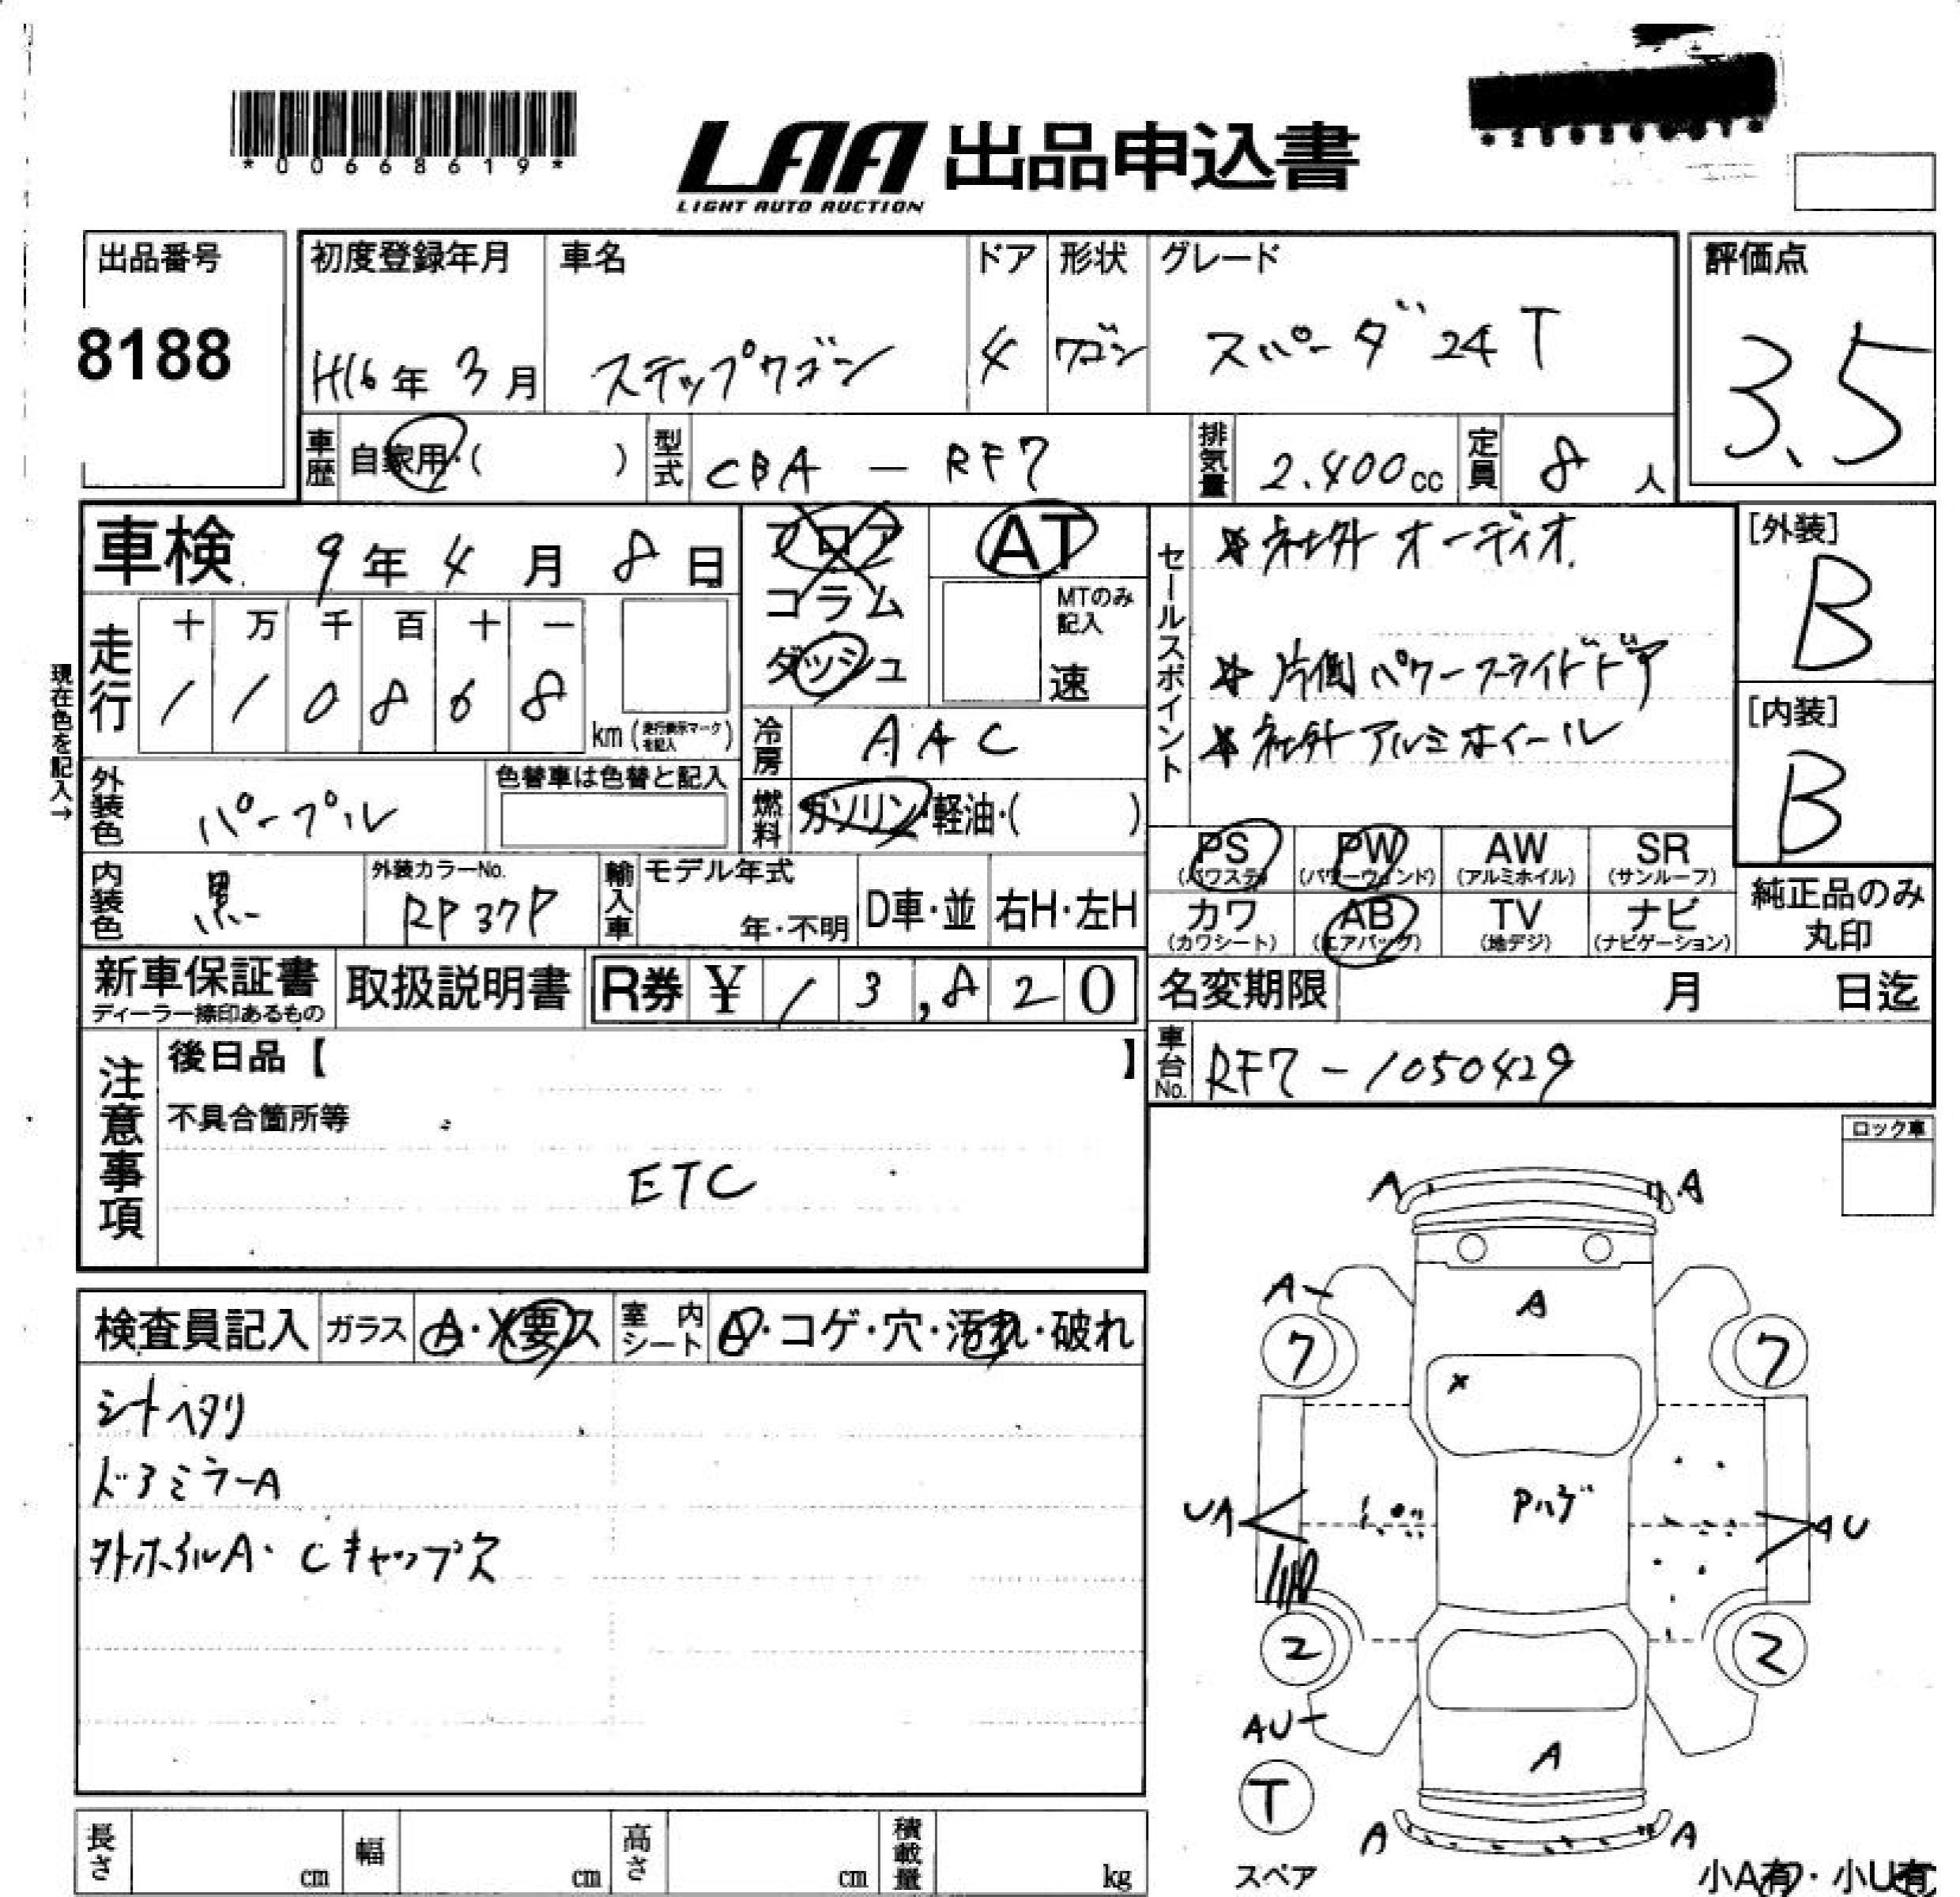 *00668619*
LAA 出品申込書
LIGHT AUTO AUCTION
出品番号
8188
初度登録年月
H16年 3月
車名
ステップワゴン
ドア
4
形状
ワゴン
グレード
スパーダ 24T
評価点
3.5
車歴 自家用・( )
型式 CBA - RF7
排気量 2.400cc
定員 8人
車検 9年 4月 8日
フロア
コラム
ダッシュ
AT
MTのみ記入
速
走行
十 万 千 百 十 一
1 1 0 8 6 8
km (走行表示マークを記入)
現在色を記入→
冷房 AAC
外装色 パープル
色替車は色替と記入
燃料 ガソリン・軽油・( )
内装色 黒
外装カラーNo.
RP37P
輸入車
モデル年式
年・不明
D車・並
右H・左H
セールスポイント
社外オーディオ
片側パワースライドドア
社外アルミホイール
[外装]
B
[内装]
B
PS (パワステ)
PW (パワーウィンド)
AW (アルミホイル)
SR (サンルーフ)
カワ (カワシート)
AB (エアバッグ)
TV (地デジ)
ナビ (ナビゲーション)
純正品のみ丸印
新車保証書
ディーラー捺印あるもの
取扱説明書
R券 ¥ 13,820
名変期限 月 日迄
車台No. RF7-1050429
注意事項
後日品【 】
不具合箇所等
ETC
ロック車
検査員記入
ガラス A・X要ス
室内シート A・コゲ・穴・汚れ・破れ
シートヘタリ
ドアミラーA
外ホイルA・Cキャップ欠
A A
A
A
7 7
X
UA
Pハゲ
AU
2 2
AU
A
T
スペア
A A
小A有・小U有
長さ cm
幅 cm
高さ cm
積載量 kg